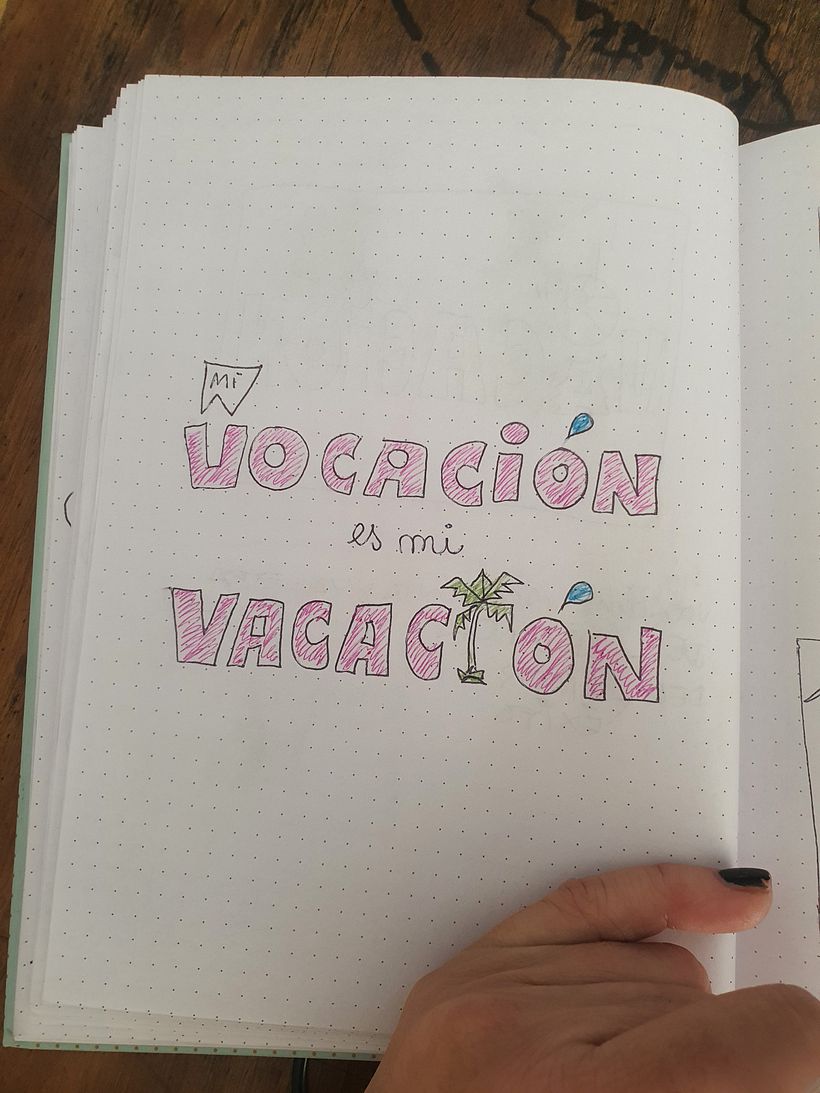 Mi
VOCACIÓN
es mi
VACACIÓN